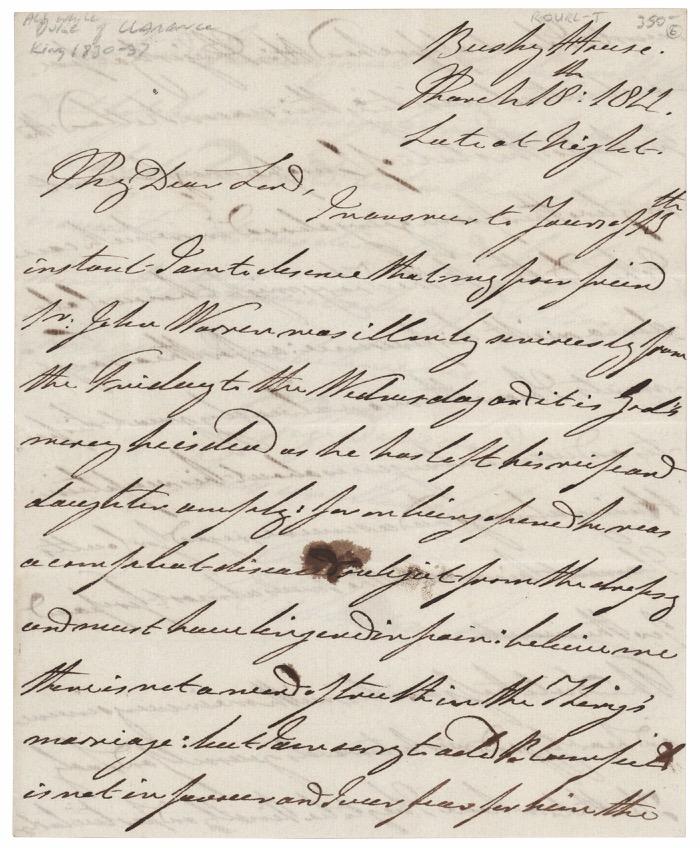 Also while
Duke of Clarence
King 1830-37
350-
6
Bushy House.
March 18th: 1822.
Late at Night.
My Dear Lord,
In answer to Yours of
instant I am to observe that my poor friend
Sr. John Warren was ill only seriously from
the Friday to the Wednesday and it is God's
mercy he is dead as he has left his wife and
daughter amply: for on being opened he was
a compleat diseased subject from the dropsy
and must have lingered in pain: believe me
there is not a word of truth in the King's
marriage: but I am sorry to add Bloomfield
is not in favour and I ever fear for him the